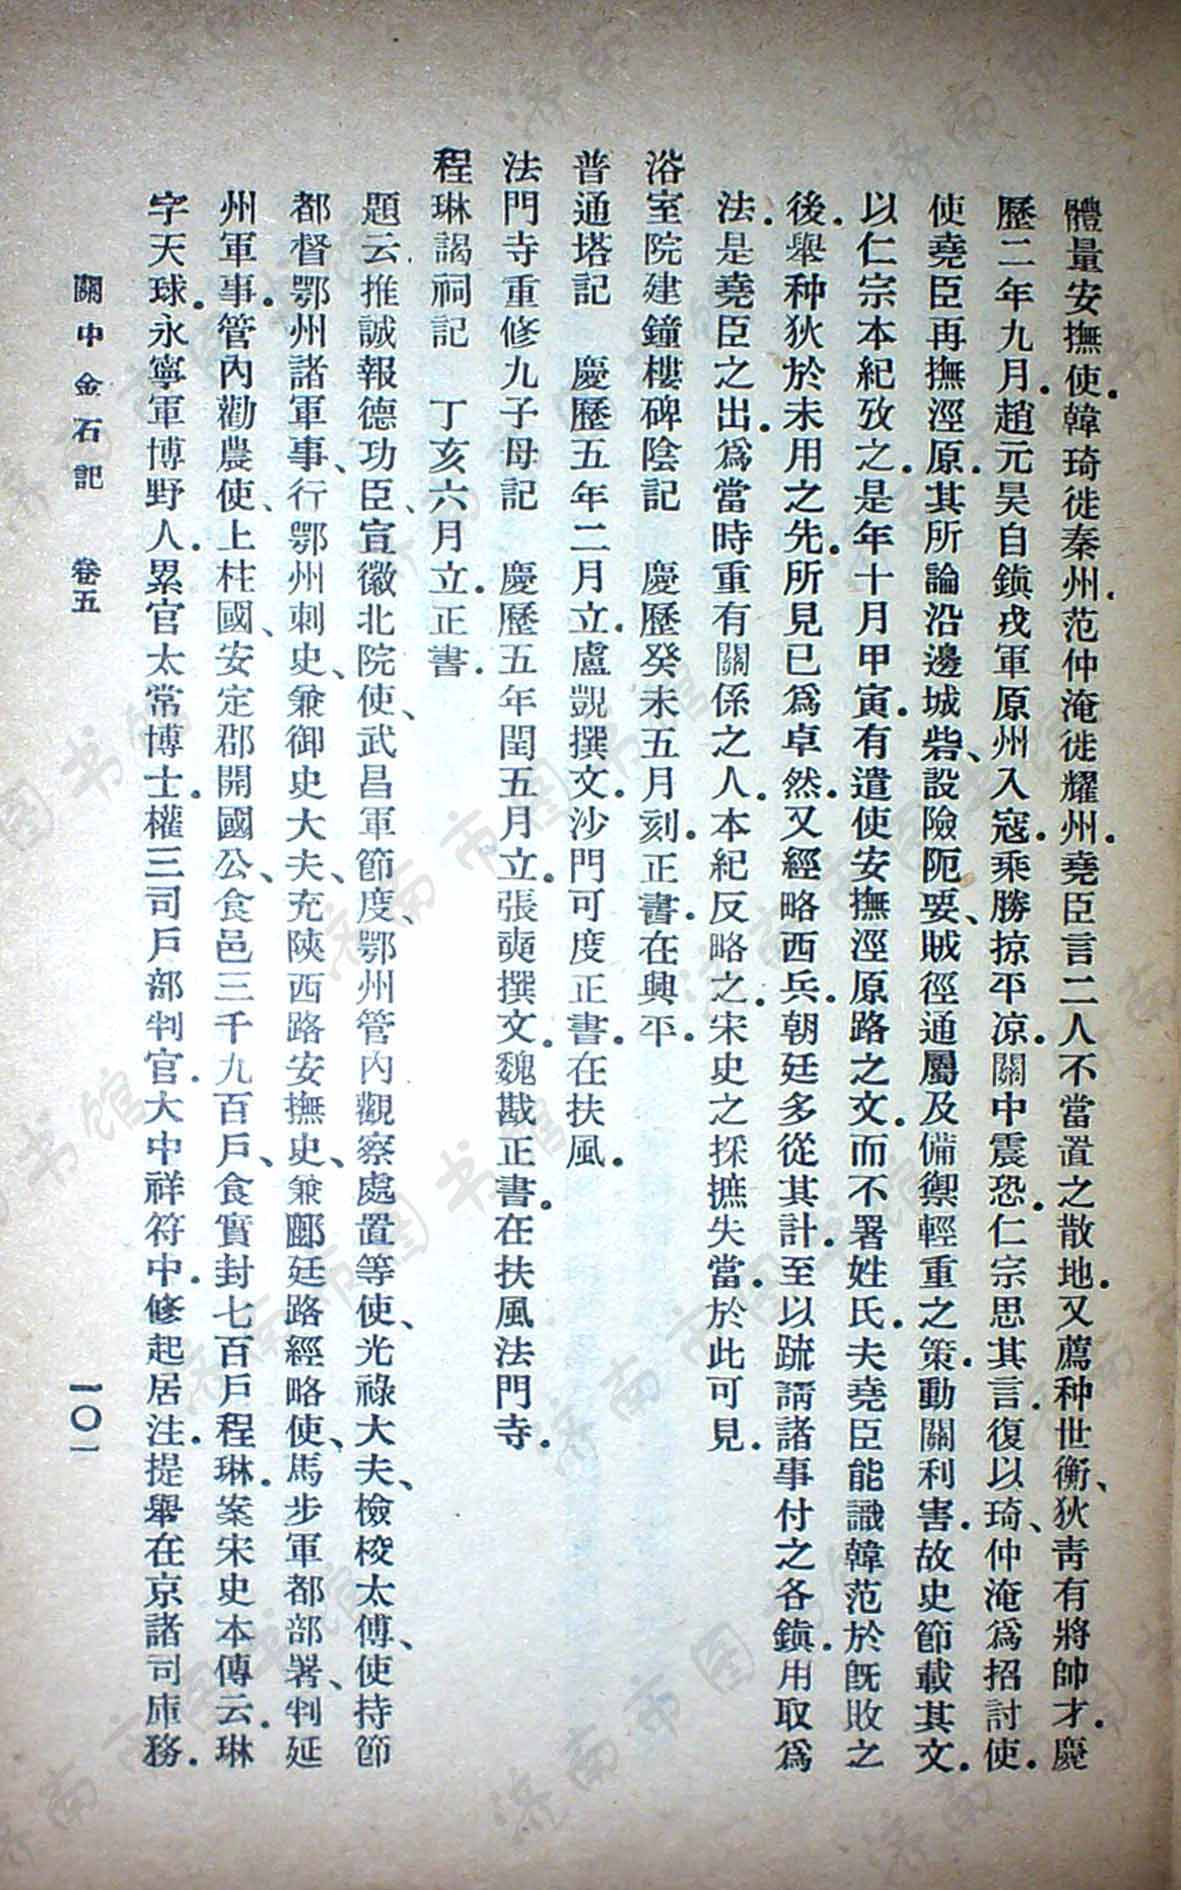 體量安撫使。韓琦徙秦州。范仲淹徙耀州。堯臣言二人不當置之散地。又薦种世衡、狄靑有將帥才。慶
歷二年九月。趙元昊自鎭戎軍原州入寇。乘勝掠平凉。關中震恐。仁宗思其言。復以琦、仲淹爲招討使。
使堯臣再撫涇原。其所論沿邊城砦、設險阨要、賊徑通屬及備禦輕重之策。動關利害。故史節載其文。
以仁宗本紀攷之。是年十月甲寅。有遣使安撫涇原路之文。而不署姓氏。夫堯臣能識韓范於旣敗之
後。舉种狄於未用之先。所見已爲卓然。又經略西兵。朝廷多從其計。至以疏謂諸事付之各鎭。用取爲
法。是堯臣之出。爲當時重有關係之人。本紀反略之。宋史之採摭失當。於此可見。
浴室院建鐘樓碑陰記　慶歷癸未五月刻。正書。在興平。
普通塔記　慶歷五年二月立。盧覬撰文。沙門可度正書。在扶風。
法門寺重修九子母記　慶歷五年閏五月立。張奭撰文。魏戡正書。在扶風法門寺。
程琳謁祠記　丁亥六月立。正書。
題云推誠報德功臣、宣徽北院使、武昌軍節度、鄂州管內觀察處置等使、光祿大夫、檢校太傅、使持節
都督鄂州諸軍事、行鄂州刺史、兼御史大夫、充陝西路安撫史、兼鄜延路經略使、馬步軍都部署、判延
州軍事。管內勸農使、上柱國、安定郡開國公、食邑三千九百戶、食實封七百戶程琳。案宋史本傳云。琳
字天球。永寧軍博野人。累官太常博士。權三司戶部判官。大中祥符中。修起居注。提舉在京諸司庫務。
關中金石記　卷五
一〇一